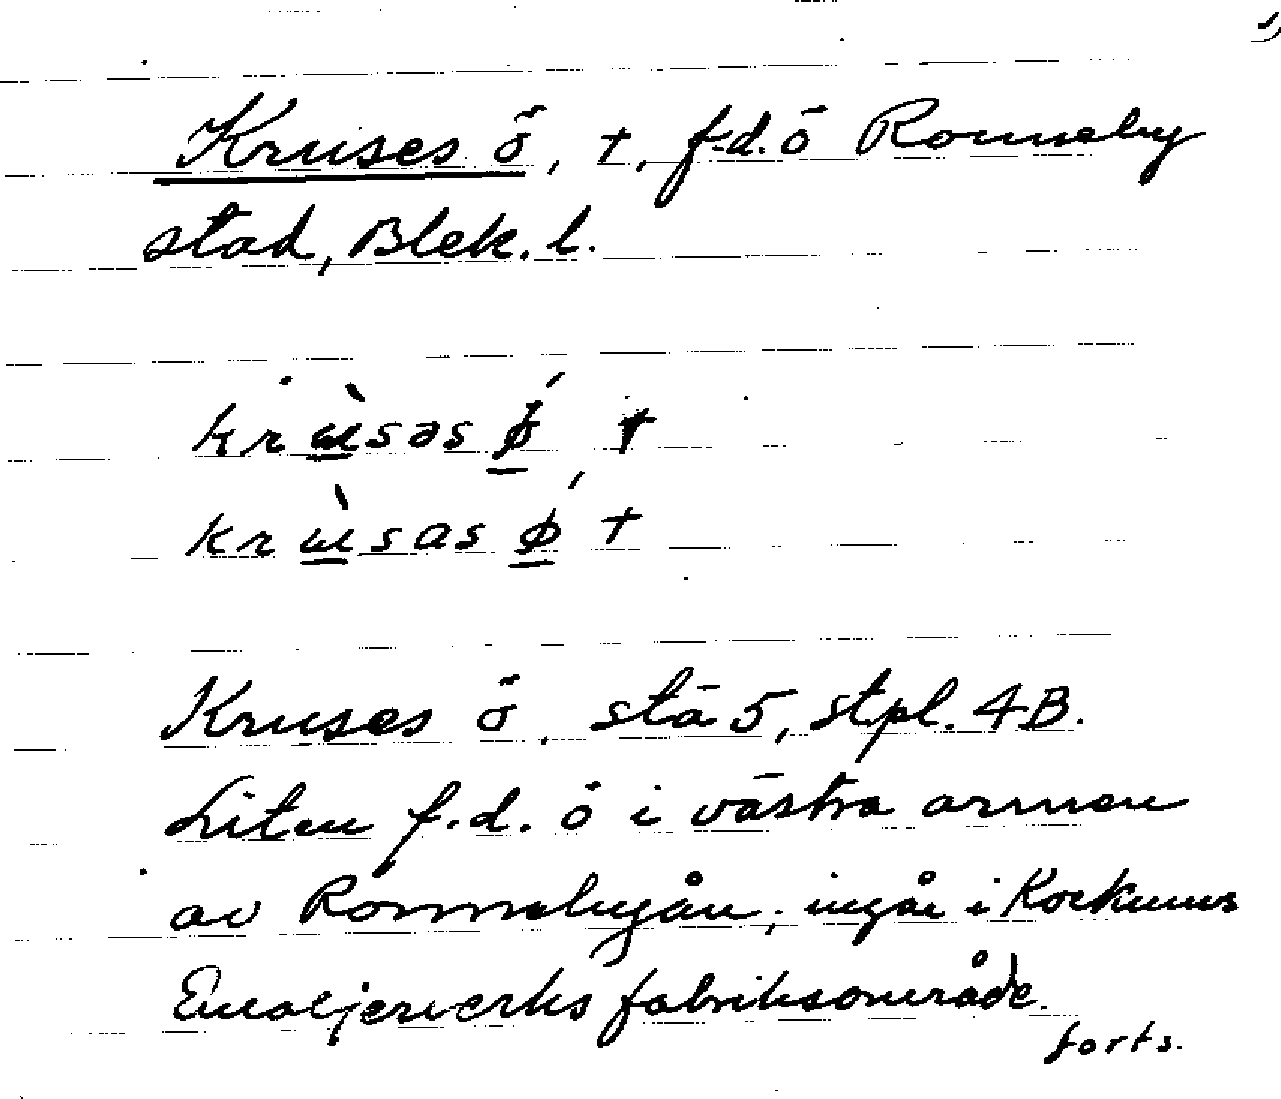 Kruses ö, †, f.d. ö Ronneby
stad, Blek. l.
krɯ̀səs ǿ †
krɯ̀sas ǿ †
Kruses ö, stä 5, stpl. 4B.
Liten f.d. ö i västra armen
av Ronnebyån; ingår i Kockums
Emaljerverks fabriksområde.
forts.